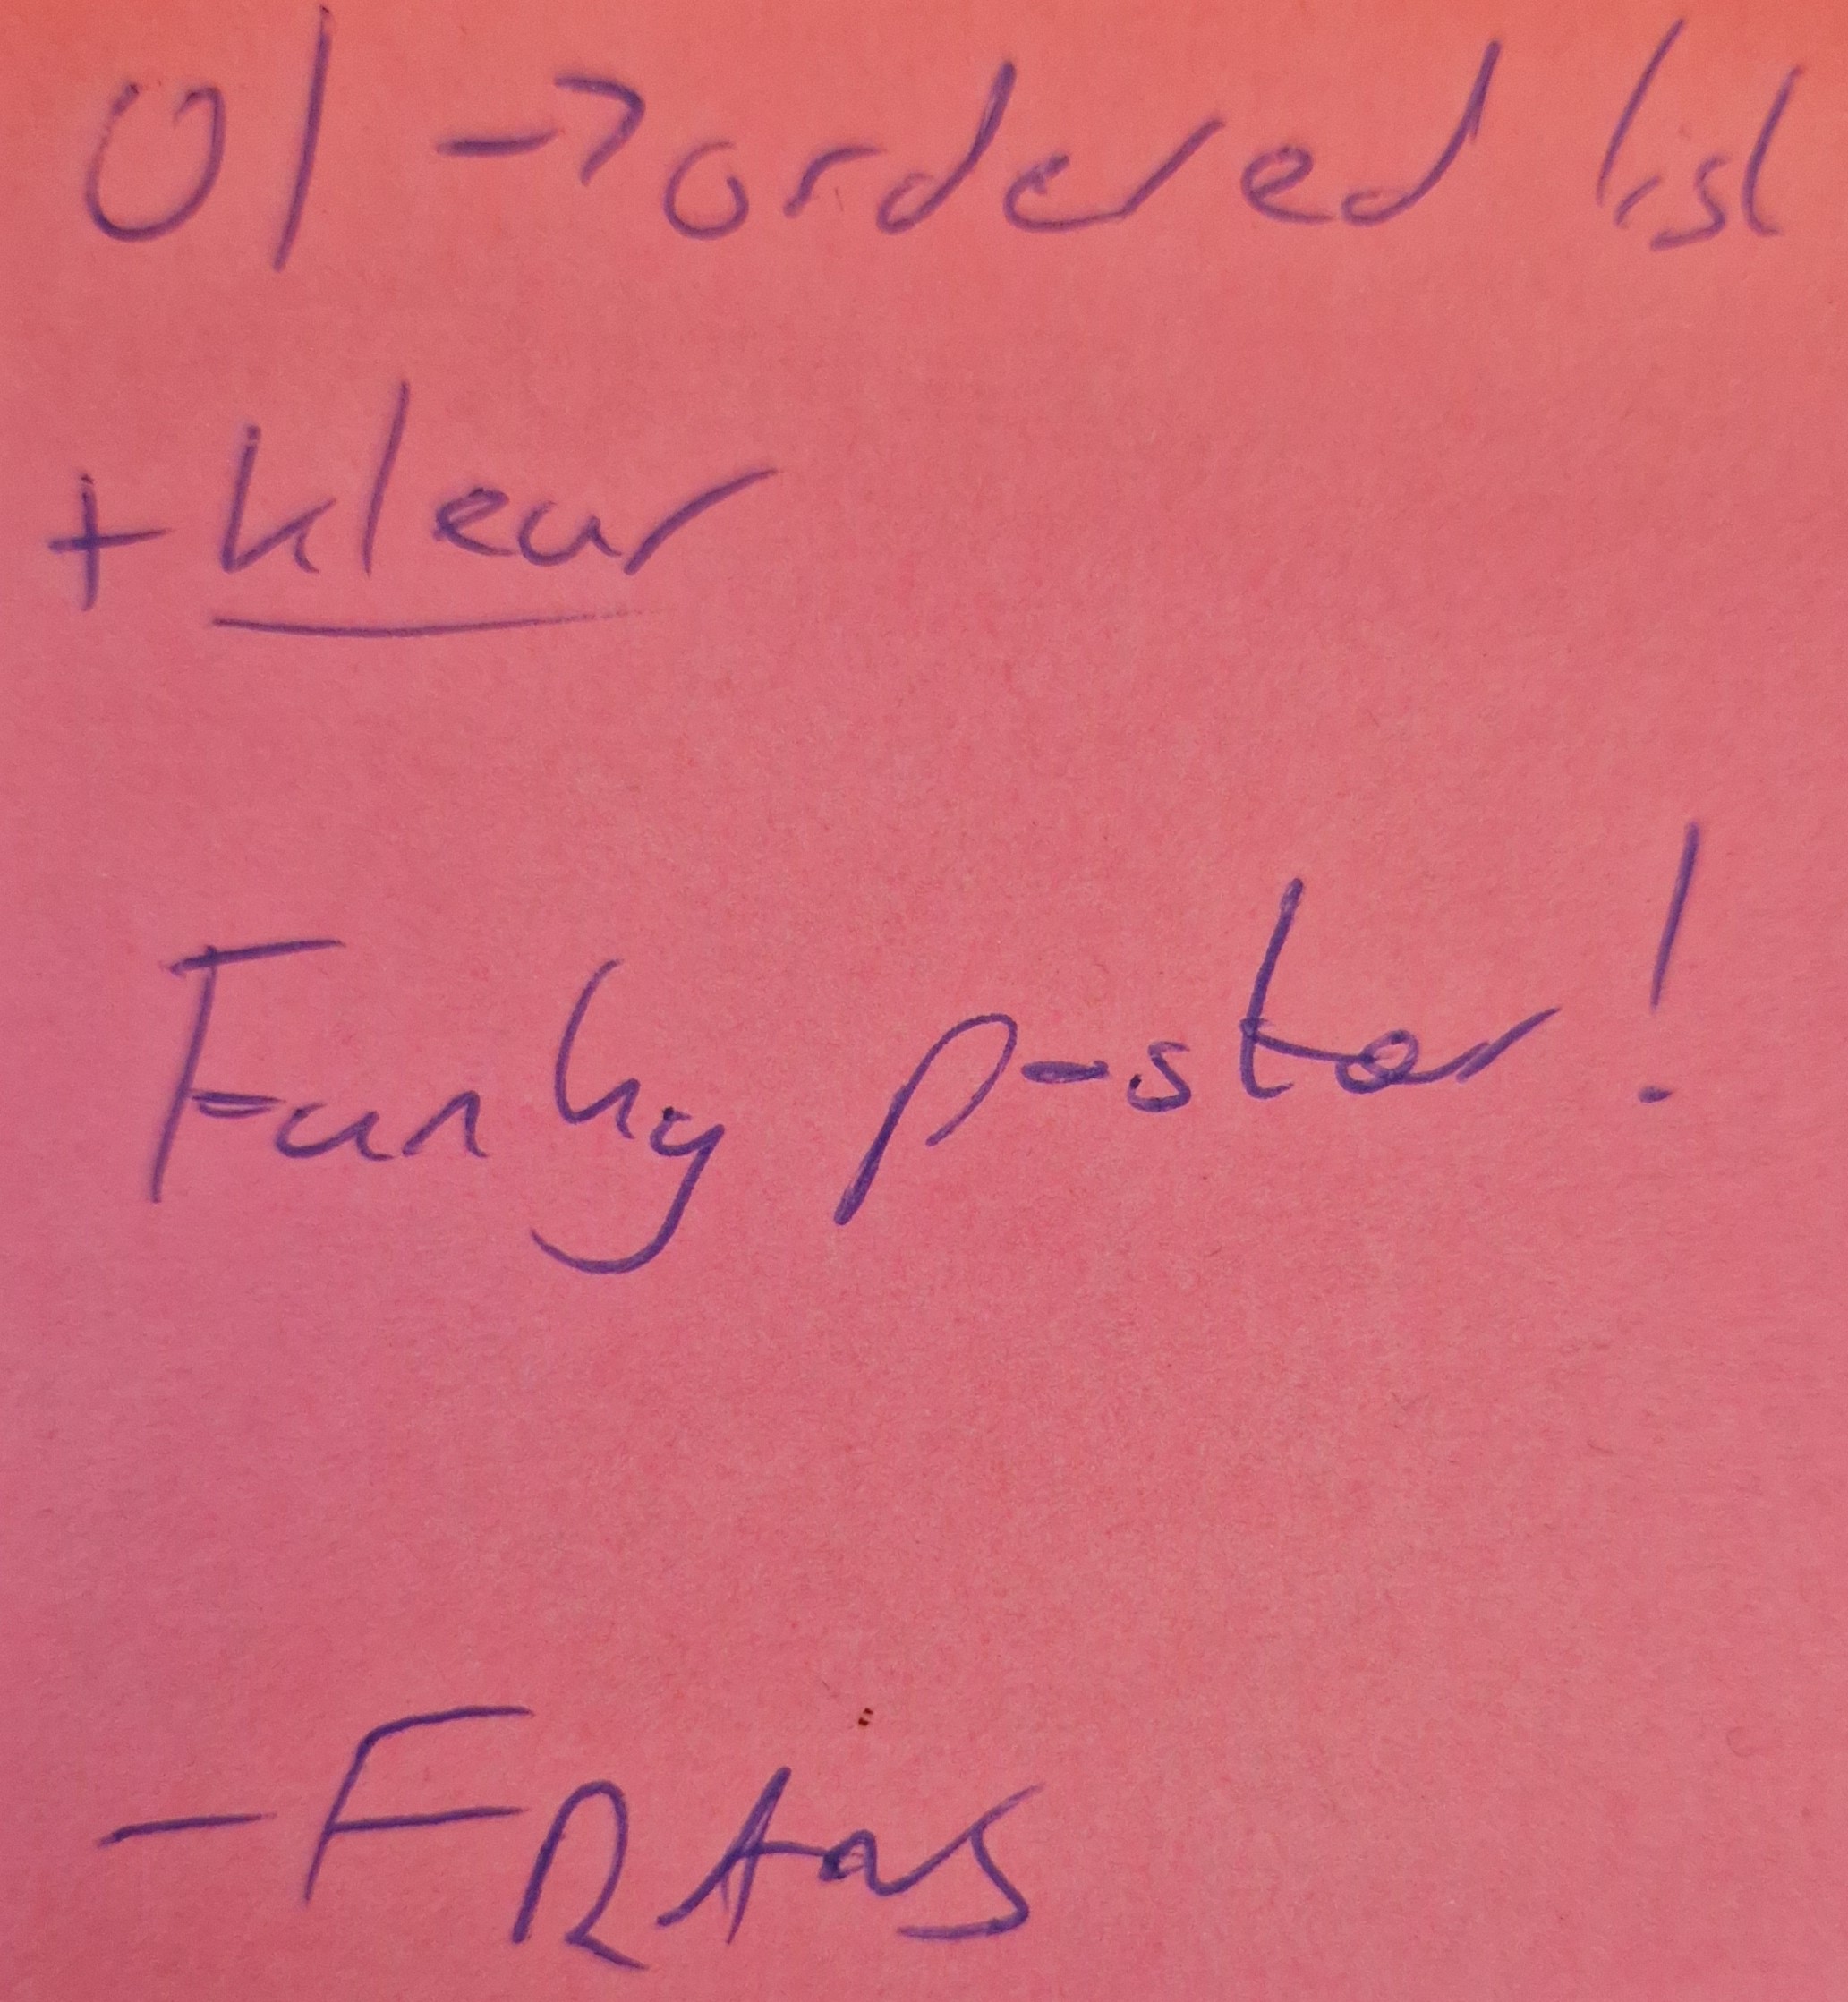 ol → ordered list
+ klear
Funky poster!